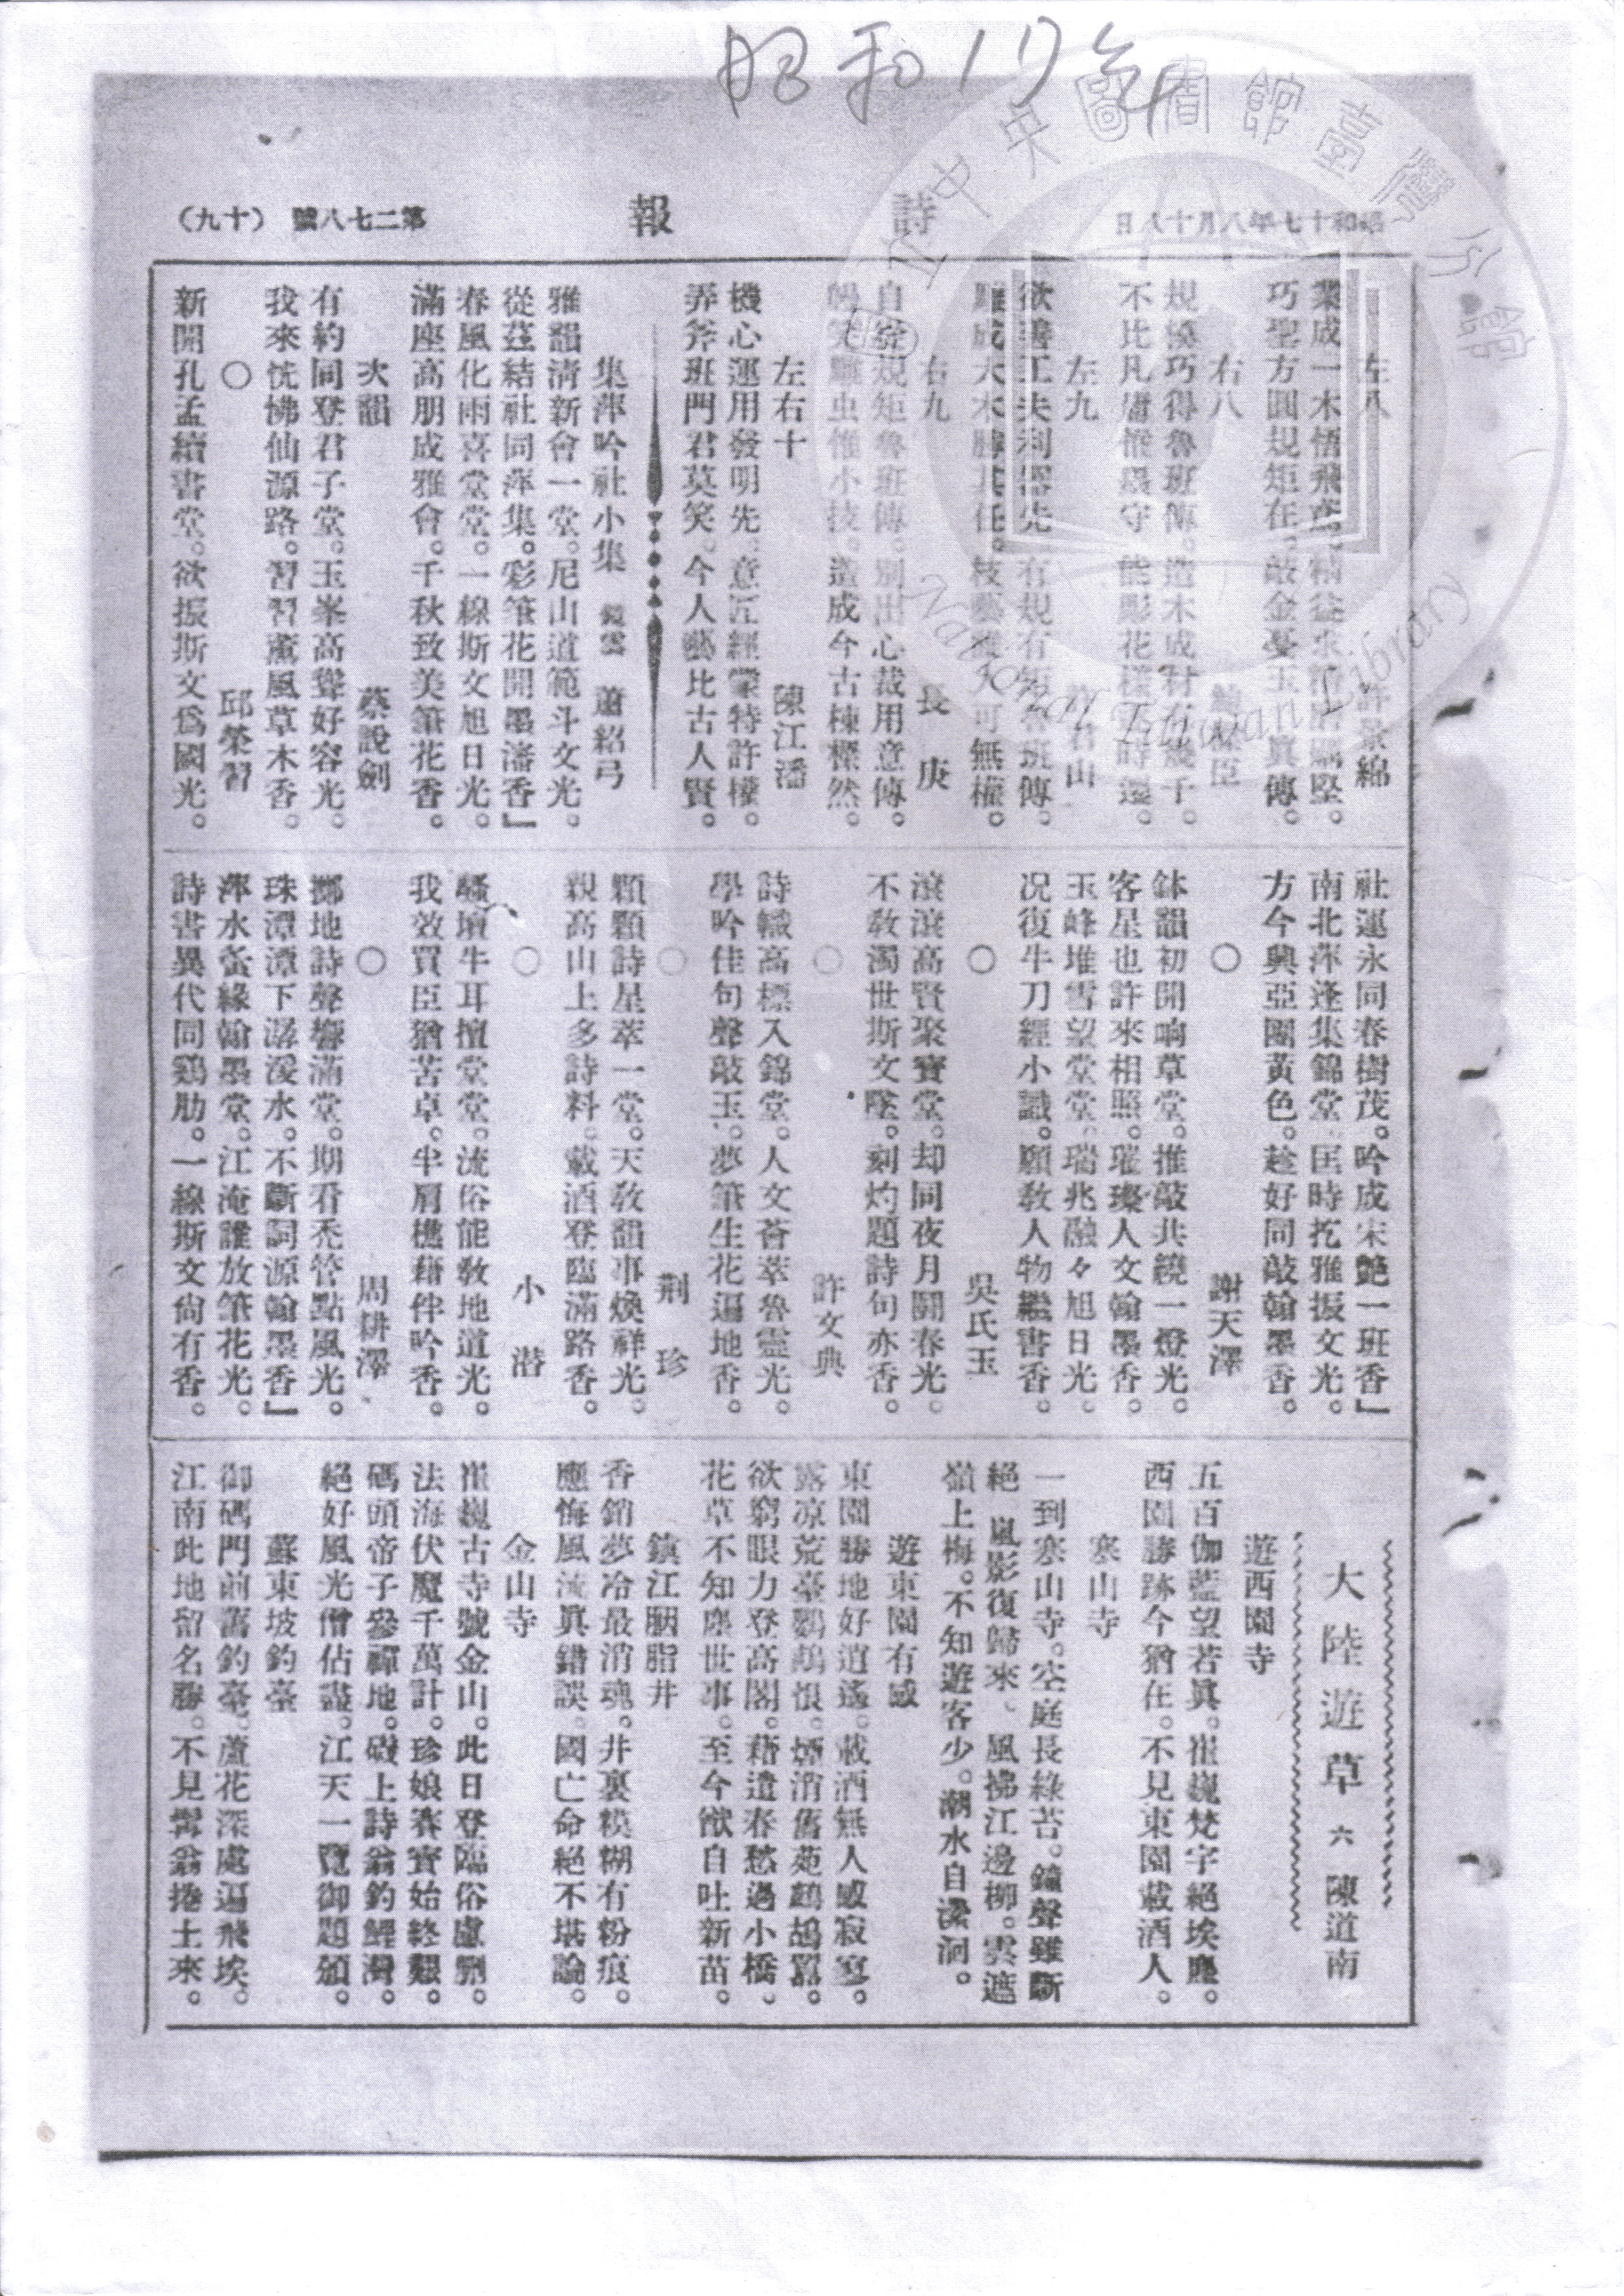 昭和17年
昭和十七年八月十八日
詩
報
第二七八號
(十九)
左八
許景綿
業成一木悟飛鳶。精益求精清礪堅。
巧聖方圓規矩在。敲金戛玉眞傳。
右八
臣
規模巧得魯班傳。造木成材有幾千。
不比凡庸惟墨守。能彫花樣時還。
左九
君山
欲善工夫利器先。有規有矩魯班傳。
雕成大木勝其任。枝藝可無權。
右九
長庚
自從規矩魯班傳。別出心裁用意傳。
雕虫惟小技。造成今古棟樑然。
左右十
陳江潘
機心運用發明先。意匠經營特許權。
弄斧班門君莫笑。今人藝比古人賢。
集萍吟社小集 鏡雲 蕭紹弓
雅韻清新會一堂。尼山道範斗文光。
從茲結社同萍集。彩筆花開墨瀋香」
春風化雨喜堂堂。一線斯文旭日光。
滿座高朋成雅會。千秋致美筆花香。
次韻
蔡說劍
有約同登君子堂。玉峯高聳好容光。
我來恍惚仙源路。習習薰風草木香。
○
邱榮習
新開孔孟續書堂。欲振斯文爲國光。
社運永同春樹茂。吟成宋艷一班香」
南北萍逢集錦堂。匡時扢雅振文光。
方今興亞團黃色。趁好同敲翰墨香。
○
謝天澤
鉢韻初開响草堂。推敲共繞一燈光。
客星也許來相照。璀璨人文翰墨香。
玉峰堆雪望堂堂。瑞兆融々旭日光。
况復牛刀經小識。願教人物繼書香。
○
吳氏玉
滾滾高賢聚寶堂。却同夜月鬪春光。
不教濁世斯文墜。刻灼題詩句亦香。
○
許文典
詩幟高標入錦堂。人文薈萃魯靈光。
學吟佳句聲敲玉。夢筆生花遍地香。
○
荆珍
顆顆詩星萃一堂。天教韻事煥祥光。
親高山上多詩料。載酒登臨滿路香。
○
小潛
騷壇牛耳擅堂堂。流俗能教地道光。
我效買臣猶苦卓。半肩樵藉伴吟香。
○
周耕澤
擲地詩聲響滿堂。期看禿管點風光。
珠潭潭下潺湲水。不斷詞源翰墨香」
萍水當緣翰墨堂。江淹誰放筆花光。
詩書異代同鷄肋。一線斯文尙有香。
大陸遊草 六 陳道南
遊西園寺
五百伽藍望若眞。崔巍梵字絕埃塵。
西園勝跡今猶在。不見東園載酒人。
寒山寺
一到寒山寺。空庭長綠苔。鐘聲雖斷
絕 嵐影復歸來。風拂江邊柳。雲遮
嶺上梅。不知遊客少。潮水自瀠洄。
遊東園有感
東園勝地好逍遙。載酒無人感寂寥。
露凉荒臺鸚鵡恨。煙消舊苑鷓鴣囂。
欲窮眼力登高閣。藉遣春愁過小橋。
花草不知塵世事。至今猷自吐新苗。
鎮江胭脂井
香銷夢冷最消魂。井裏糢糊有粉痕。
應悔風流眞錯誤。國亡命絕不堪論。
金山寺
崔巍古寺號金山。此日登臨俗慮刪。
法海伏魔千萬計。珍娘賽寶始終艱。
碼頭帝子參禪地。磯上詩翁釣鯉灣。
絕好風光僧佔盡。江天一覽御題頒。
蘇東坡釣臺
御碼門前舊釣臺。蘆花深處遍飛埃。
江南此地留名勝。不見髯翁捲土來。
國立中央圖書館臺灣分館
National Taiwan Library